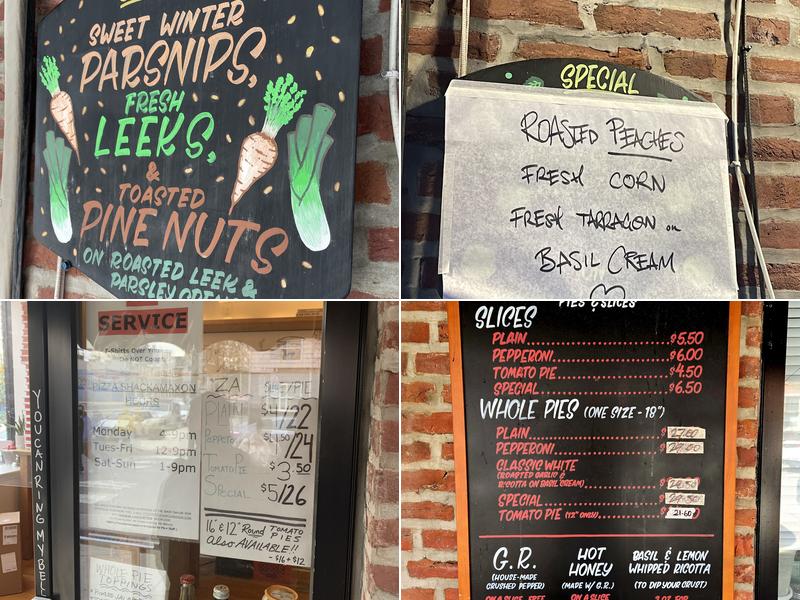 SWEET WINTER
PARSNIPS,
FRESH
LEEKS,
&
TOASTED
PINE NUTS
ON ROASTED LEEK &
PARSLEY
SPECIAL
ROASTED PEACHES
FRESH CORN
FRESH TARRAGON on
BASIL CREAM
SERVICE
T-Shirts Over Your
Do NOT Count
PIZZA SHACKAMAXON
HOURS
Monday 9pm
Tues-Fri 12-9pm
Sat-Sun 1-9pm
YOU CAN RING MY BEL
WHOLE PIE
TOPPINGS
ZA
PLAIN /22
/24
TOMATO PIE $3.50
SPECIAL $5/26
16" & 12" Round TOMATO
PIES
Also AVAILABLE!!
- $16 + $12
PIES & SLICES
SLICES
PLAIN $5.50
PEPPERONI $6.00
TOMATO PIE $4.50
SPECIAL $6.50
WHOLE PIES (ONE SIZE - 18")
PLAIN $
PEPPERONI $
CLASSIC WHITE
(ROASTED GARLIC &
RICOTTA ON BASIL CREAM) $
SPECIAL $
TOMATO PIE (12" ONLY) $21.60
G.R.
(HOUSE-MADE
CRUSHED PEPPER)
ON A SLICE, FREE
HOT
HONEY
(MADE W/ G.R.)
ON A SLICE
BASIL & LEMON
WHIPPED RICOTTA
(TO DIP YOUR CRUST)
2 OZ FOR